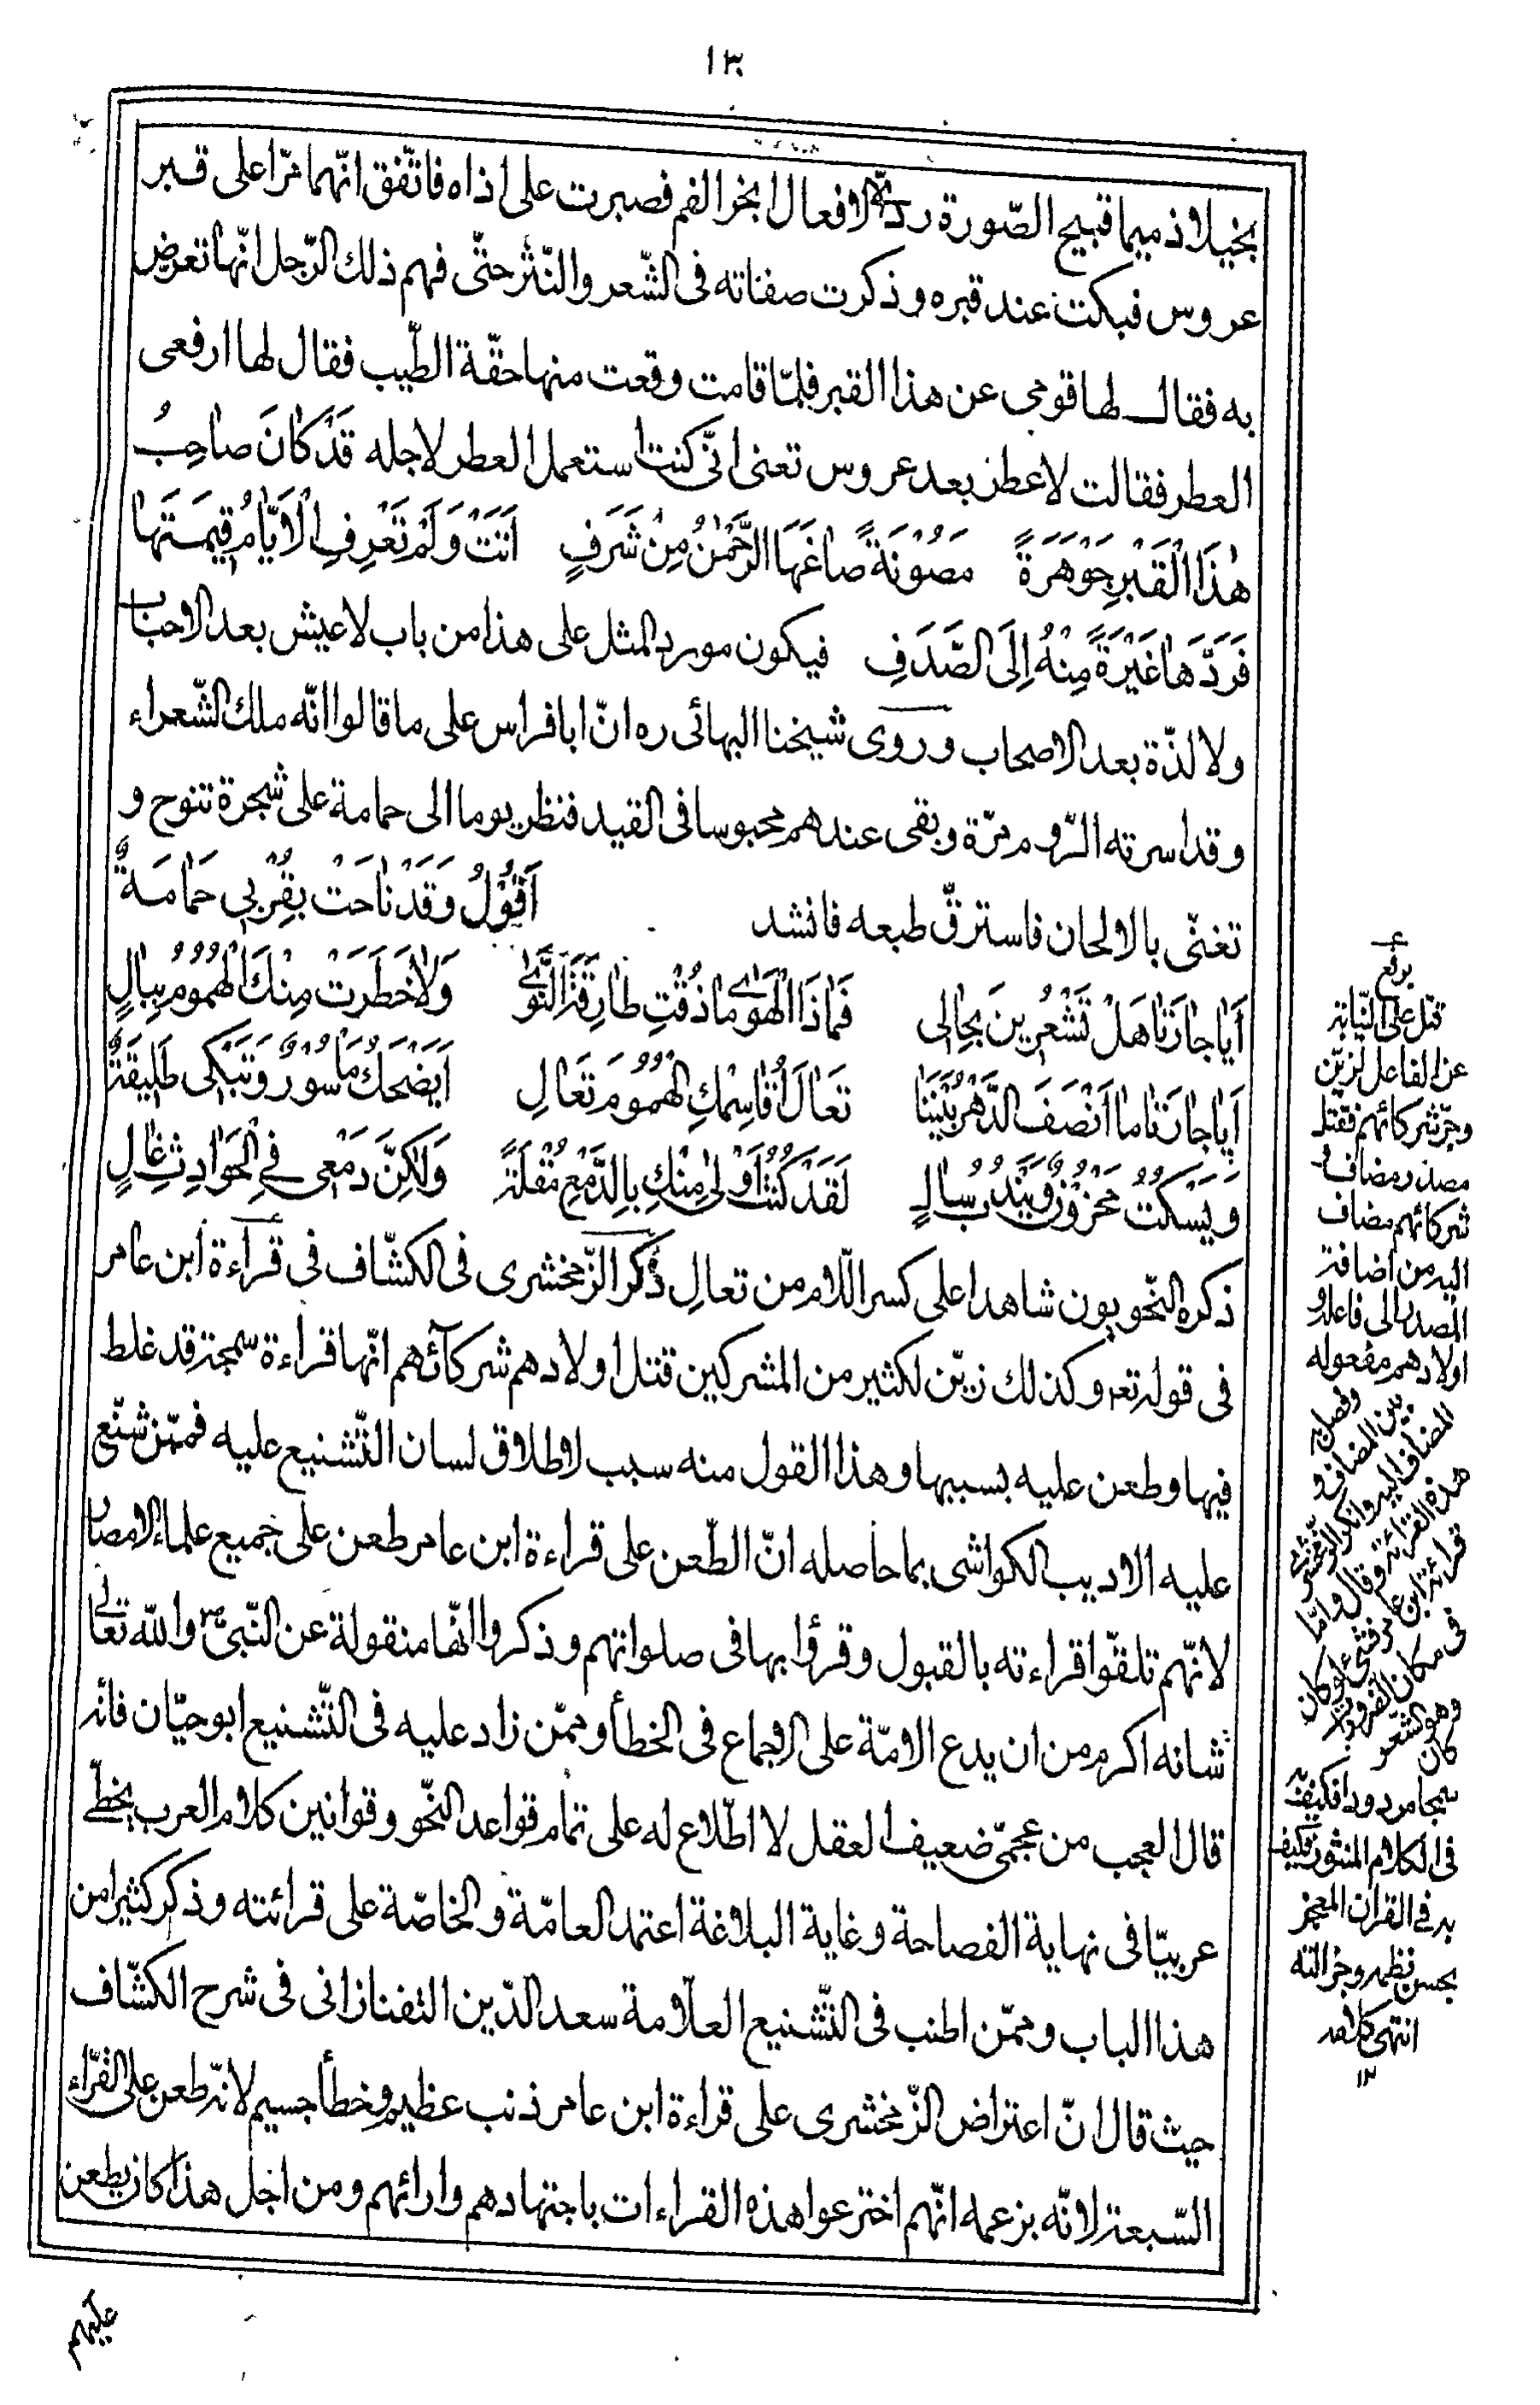 ١٣
بخيلا ذميما قبيح الصّورة ردىّ الافعال ابخر الفم فصبرت على اذاه فاتّفق انّهما مرّا على قبر
عروس فبكت عند قبره وذكرت صفاته فى الشّعر والنّثر حتّى فهم ذلك الرّجل انّها تعريض
به فقال لها قومى عن هذا القبر فلمّا قامت وقعت منها حقّة الطّيب فقال لها ارفعى
العطر فقالت لا عطر بعد عروس تعنى انّى كنت استعمل العطر لاجله قَدْ كَانَ صاحِبُ
هٰذَا الْقَبْرِ جَوْهَرَةً مَصُوْنَةً صاغَهَا الرَّحْمٰنُ مِنْ شَرَفٍ اَتَتْ وَلَمْ تَعْرِفِ الْاَيَّامُ قِيمَتَها
فَرَدَّها غَيْرَةً مِنْهُ اِلَى الصَّدَفِ فيكون مورد المثل على هذا من باب لا عيش بعد الاحباب
ولا لذّة بعد الاصحاب وروى شيخنا البهائى ره انّ ابا فراس على ما قالوا انّه ملك الشّعراء
وقد اسرته الرّوم مرّة وبقى عندهم محبوسا فى القيد فنظر يوما الى حمامة على شجرة تنوح و
تغنّى بالالحان فاسترقّ طبعه فانشد اَقُوْلُ وَقَدْ ناحَتْ بِقُرْبِى حَمامَةٌ
اَيا جارَتا هَلْ تَشْعُرِينَ بِحالِى فَما ذَا الْهَوٰى ما ذُقْتِ طارِقَةَ النَّوٰى وَلا خَطَرَتْ مِنْكَ الْهُمُوْمُ بِبالٍ
اَيا جارَتا ما اَنْصَفَ الدَّهْرُ بَيْنَنا تَعالَ اُقاسِمْكِ الْهُمُوْمَ تَعالِ اَيَضْحَكُ مَاْسُوْرٌ وَتَبْكى طَلِيقَةٌ
وَيَسْكُتُ مَحْزُوْنٌ وَيَنْدُبُ سالٍ لَقَدْ كُنْتُ اَوْلٰى مِنْكِ بِالدَّمْعِ مُقْلَةً وَلٰكِنَّ دَمْعى فِى الْحَوادِثِ غالٍ
ذكره النّحويون شاهدا على كسر اللّام من تعالِ ذكر الزّمخشرى فى الكشّاف فى قرآءة ابن عامر
فى قوله تعه وكذلك زيّن لكثير من المشركين قتل اولادهم شركآئهم انّها قراءة سمجة قد غلط
فيها وطعن عليه بسببها وهذا القول منه سبب لاطلاق لسان التّشنيع عليه فممّن شنّع
عليه الاديب الكواشى بما حاصله انّ الطّعن على قراءة ابن عامر طعن على جميع علماء الامصار
لانّهم تلقّوا قراءته بالقبول وقرؤا بها فى صلواتهم وذكروا انّها منقولة عن النّبىّ ص والله تعالى
شانه اكرم من ان يدع الامّة على الاجماع فى الخطأ وممّن زاد عليه فى التّشنيع ابو حيّان فانه
قال العجب من عجمىّ ضعيف العقل لا اطّلاع له على تمام قواعد النّحو وقوانين كلام العرب يخطّئ
عربيّا فى نهاية الفصاحة وغاية البلاغة اعتمد العامّة والخاصّة على قرائته وذكر كثيرا من
هذا الباب وممّن اطنب فى التّشنيع العلّامة سعد الدّين التفتازانى فى شرح الكشّاف
حيث قال انّ اعتراض الزّمخشرى على قراءة ابن عامر ذنب عظيم وخطأ جسيم لانّه طعن على القرّاء
السّبعة لانّه بزعمه انّهم اخترعوا هذه القراءات باجتهادهم وارائهم ومن اجل هذا كان يطعن
عليهم
يرفع
قتل على النّيابة
عن الفاعل لزيّن
وجرّ شركائهم فقتل
مصدر مضاف و
شركائهم مضاف
اليه من اضافة
المصدر الى فاعله و
اولادهم مفعوله
وفصل به
بين المضاف و
المضاف اليه وانكر الزّمخشرى
هذه القراءة وقال وامّا
قرائة ابن عامر فشئ لو كان
فى مكان الضرورة
وهو الشعر
كان
سمجا مردودا فكيف به
فى الكلام المنثور فكيف
به فى القران المعجز
بحسن نظمه وجزالته
انتهى كلامه
١٢